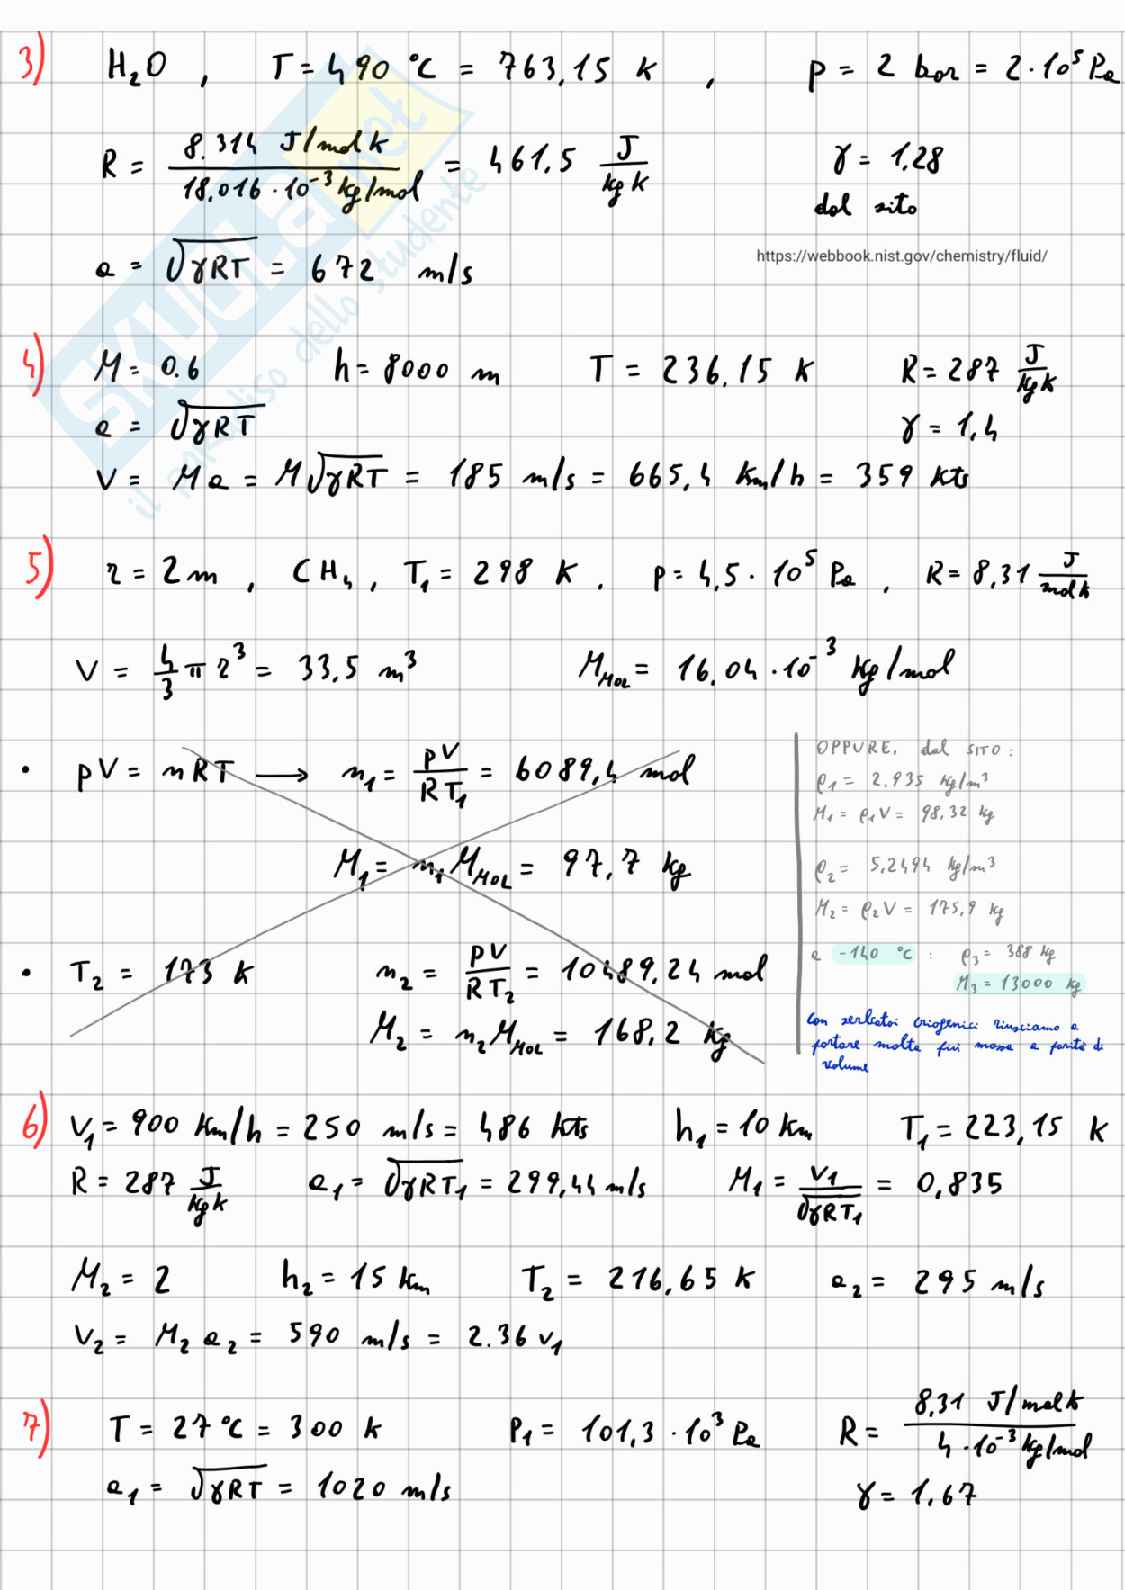 3) H₂O , T = 490 °C = 763,15 K , p = 2 bar = 2·10⁵ Pa
R = 8.314 J/mol K / 18,016·10⁻³ kg/mol = 461,5 J/kg K γ = 1,28
dal sito
https://webbook.nist.gov/chemistry/fluid/
a = √γRT = 672 m/s
4) M = 0.6 h = 8000 m T = 236,15 K R = 287 J/kg K
a = √γRT γ = 1,4
V = Ma = M√γRT = 185 m/s = 665,4 Km/h = 359 kts
5) r = 2 m , CH₄ , T₁ = 298 K , p = 4,5·10⁵ Pa , R = 8,31 J/mol K
V = 4/3 π r³ = 33.5 m³ M_MOL = 16,04·10⁻³ kg/mol
• pV = nRT → n₁ = pV/RT₁ = 6089,4 mol
M₁ = n₁ M_MOL = 97,7 kg
• T₂ = 173 K n₂ = pV/RT₂ = 10489,24 mol
M₂ = n₂ M_MOL = 168,2 kg
OPPURE, dal SITO:
ρ₁ = 2.935 kg/m³
M₁ = ρ₁V = 98,32 kg
ρ₂ = 5,2494 kg/m³
M₂ = ρ₂V = 175,9 kg
a -140 °C : ρ₃ = 388 kg
M₃ = 13000 kg
Con serbatoi criogenici riusciamo a
portare molta più massa a parità di
volume
6) V₁ = 900 Km/h = 250 m/s = 486 kts h₁ = 10 km T₁ = 223,15 K
R = 287 J/kg K a₁ = √γRT₁ = 299,44 m/s M₁ = V₁/√γRT₁ = 0,835
M₂ = 2 h₂ = 15 km T₂ = 216,65 K a₂ = 295 m/s
V₂ = M₂ a₂ = 590 m/s = 2.36 V₁
7) T = 27 °C = 300 K P₁ = 101,3·10³ Pa R = 8,31 J/mol K / 4·10⁻³ kg/mol
a₁ = √γRT = 1020 m/s γ = 1,67
SKUOLA.net
il paradiso dello studente